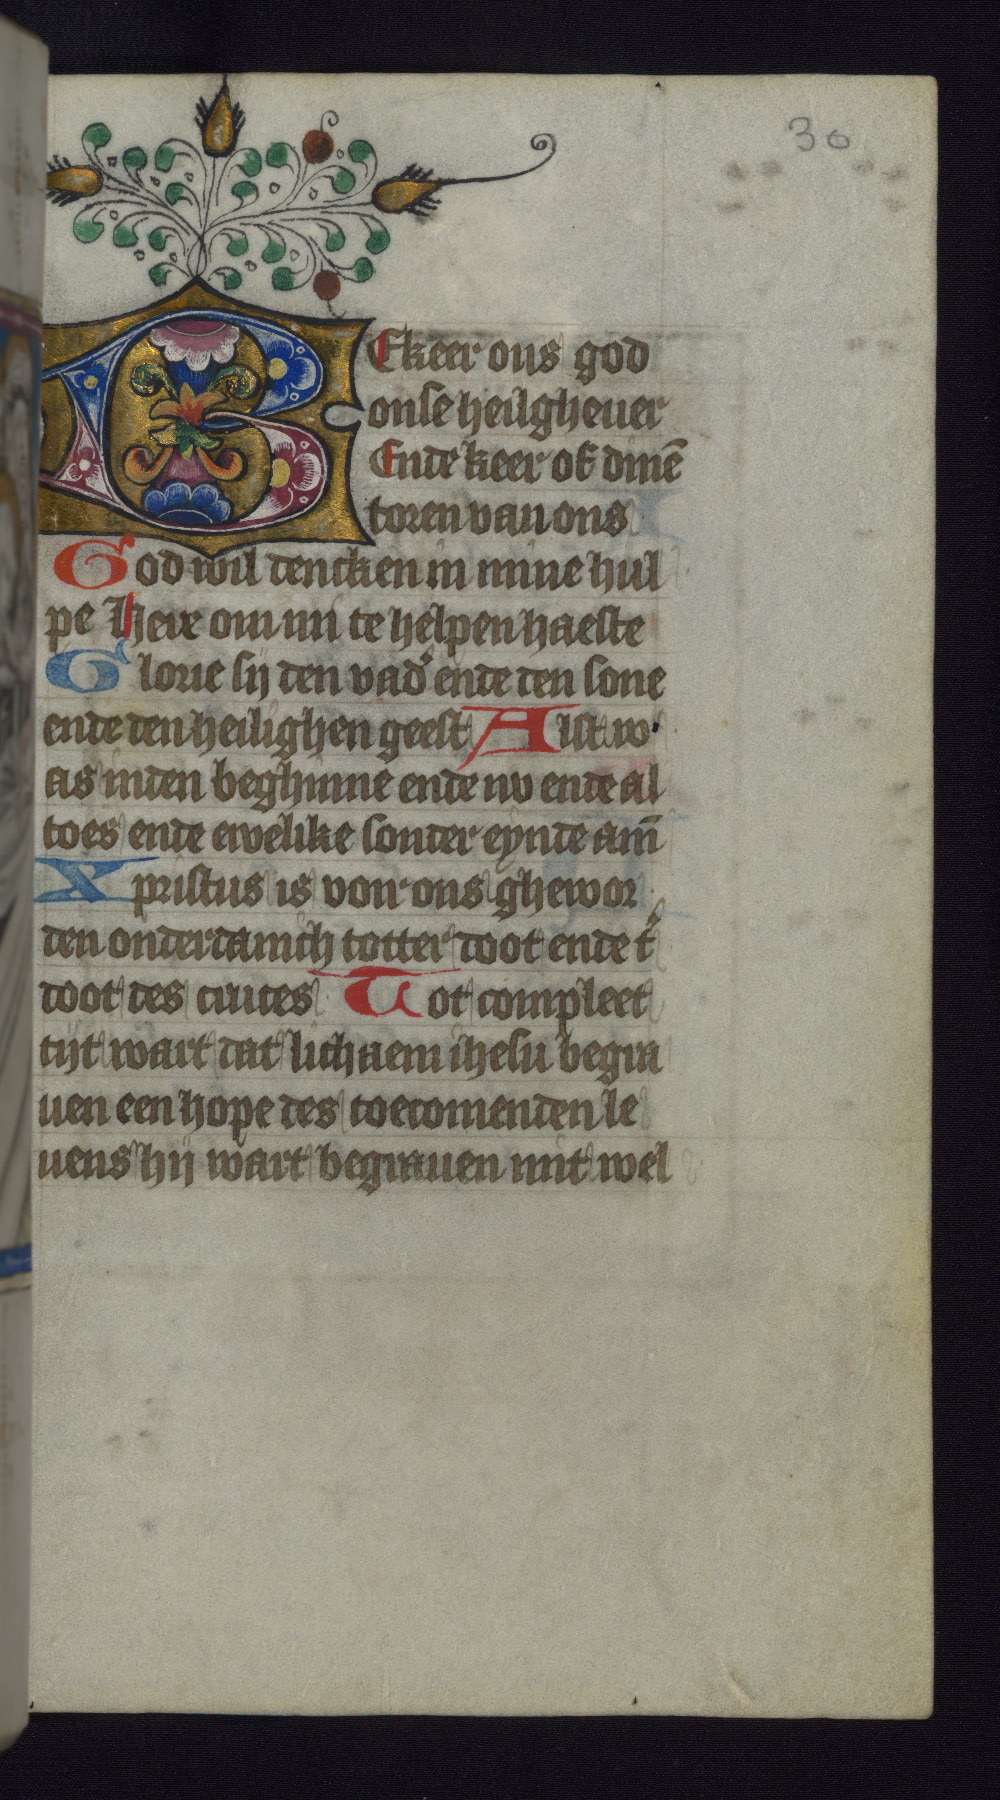 30
BEkeer ons god
onse heilgheuer
Ende keer of dinē
toren van ons
God wil dencken in mine hul
pe Here om mi te helpen haeste
Glorie sij den vad' ende den sone
ende den heilighen geest Alst w
as inden beghinne ende nv ende al
toes ende ewelike sonder eynde am̄
Xpristus is voir ons ghewor
den onderdanich totter doot ende t'
doot des cruces Tot compleet
tijt wart dat lichaem ihesu begra
uen een hope des toecomenden le
uens hij wart begrauen mit wel